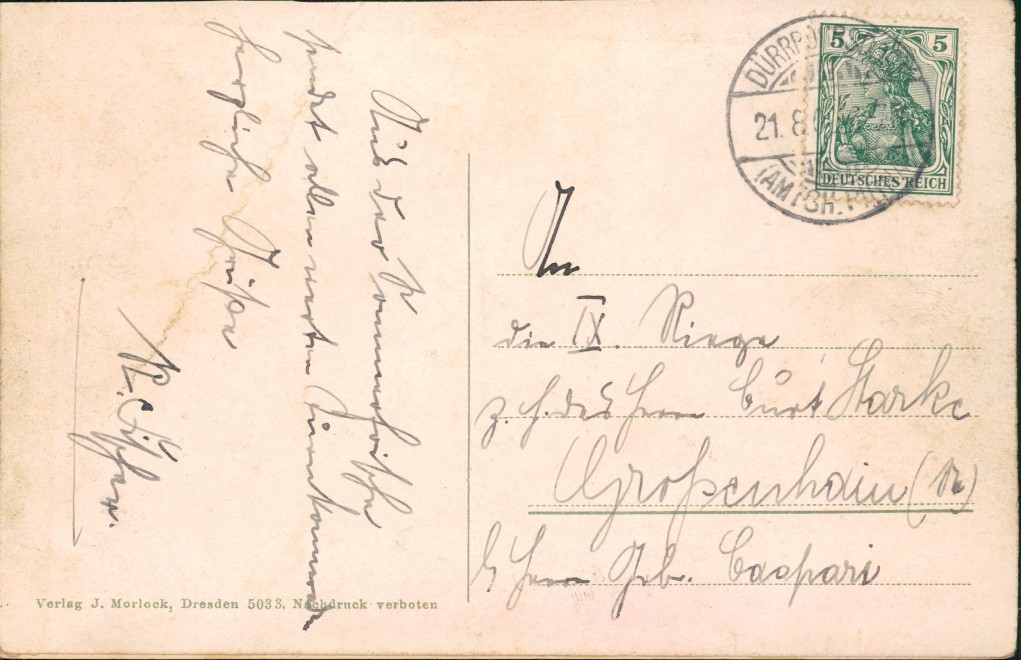 Aus der Sommerfrische
sendet allen werten Turnkameraden
herzliche Grüße
5 5
DEUTSCHES REICH
21. 8.
An
die IX. Riege
z. H. des Herrn Curt Starke
Großenhain
b/ Herrn Geb. Caspari
Verlag J. Morlock, Dresden 5033. Nachdruck verboten